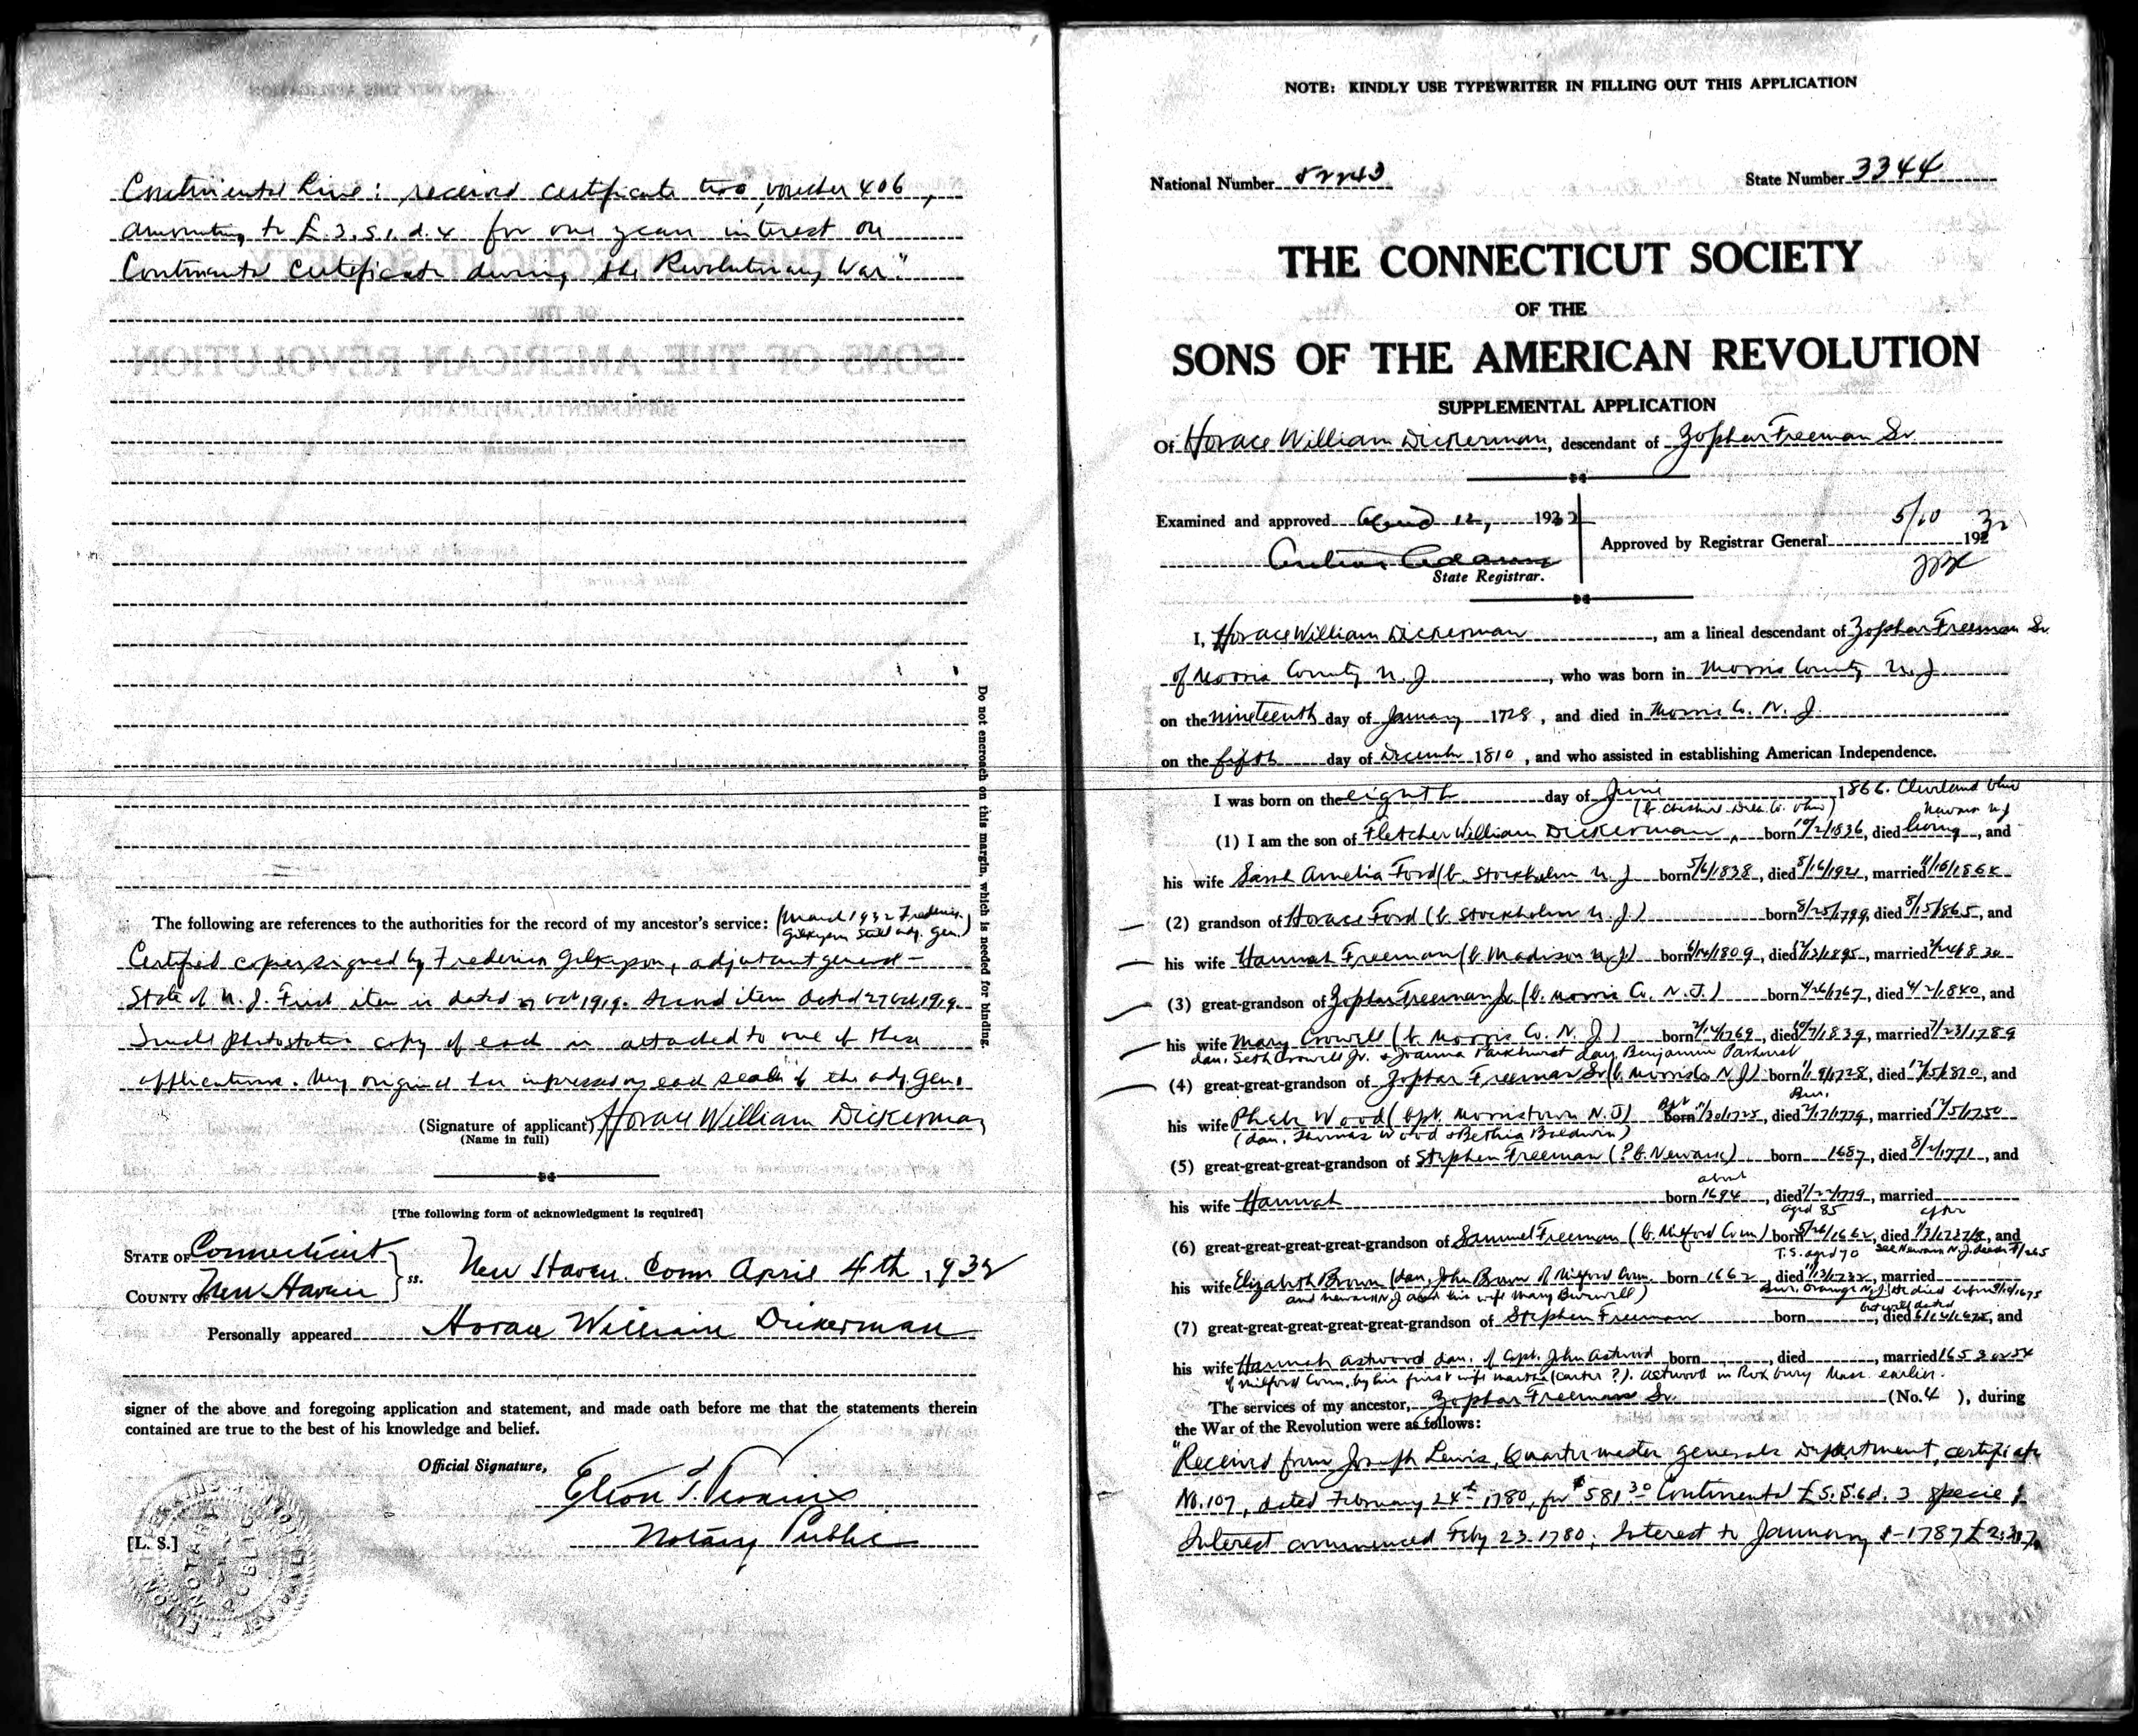 Continental Line: received certificate two, voucher 406,
amounting to £.3.s1.d.4 for one years interest on
Continental Certificate during the Revolutionary War."
Do not encroach on this margin, which is needed for binding.
The following are references to the authorities for the record of my ancestor's service: (March 1932 Frederick
Gilkyson still adj. Gen.)
Certified copies signed by Frederick Gilkyson, adjutant general -
State of N. J. First item is dated 27 Oct 1919. Second item dated 27 Oct. 1919.
Small photostatic copy of each is attached to one of these
applications. My original has impressed on each seal of the adj. Gen.
(Signature of applicant) Horace William Dickerman
(Name in full)
[The following form of acknowledgment is required]
STATE OF Connecticut
COUNTY OF New Haven } ss. New Haven. Conn April 4th, 1932
Personally appeared Horace William Dickerman
signer of the above and foregoing application and statement, and made oath before me that the statements therein
contained are true to the best of his knowledge and belief.
Official Signature,
[L. S.]
Notary Public
NOTE: KINDLY USE TYPEWRITER IN FILLING OUT THIS APPLICATION
National Number 52243 State Number 3344
THE CONNECTICUT SOCIETY
OF THE
SONS OF THE AMERICAN REVOLUTION
SUPPLEMENTAL APPLICATION
Of Horace William Dickerman, descendant of Zophar Freeman Sr
Examined and approved April 12, 1932
Approved by Registrar General 5/10 1932
State Registrar.
I, Horace William Dickerman, am a lineal descendant of Zophar Freeman Sr.
of Morris County N. J, who was born in Morris County N. J
on the nineteenth day of January 1728, and died in Morris Co. N. J.
on the fifth day of December 1810, and who assisted in establishing American Independence.
I was born on the eighth day of June 1866. Cleveland Ohio
(b. Cheshire Dela. Co. Ohio) Newark N J
(1) I am the son of Fletcher William Dickerman, born 10/2/1836, died living, and
his wife Sarah Amelia Ford (b. Stockholm N. J born 5/6/1838, died 8/16/1921, married
(2) grandson of Horace Ford (b. Stockholm N. J.) born 8/25/1799, died 8/15/1865, and
his wife Hannah Freeman (b. Madison N. J.) born 6/14/1809, died 12/13/1895, married
(3) great-grandson of Zophar Freeman Jr. (b. Morris Co. N. J.) born 4/26/1767, died 4/2/1840, and
his wife Mary Crowell (b. Morris Co. N. J.) born 2/14/1769, died 10/7/1839, married 7/23/1789
dau. Seth Crowell Jr. & Joanna Parkhurst dau. Benjamin Parkhurst
(4) great-great-grandson of Zophar Freeman Sr (b. Morris Co N J) born 1/19/1728, died 12/5/1810, and
his wife Phebe Wood (bpt. Morristown N. J) born 11/30/1725, died 2/17/1779, married 12/5/1750
Bpt Bur.
(dau. Thomas Wood & Bethia Baldwin)
(5) great-great-great-grandson of Stephen Freeman (? b. Newark) born 1687, died 8/2/1771, and
about
his wife Hannah born 1694, died 7/22/1779, married
aged 85 after
(6) great-great-great-great-grandson of Samuel Freeman (b. Milford Conn) born 5/26/1662, died, and
T.S. aged 70 See Newark N. J. deeds
his wife Elizabeth Brown (dau. John Brown of Milford Conn. born 1662, died 11/3/1732, married
and Newark N. J and his wife Mary Burwell)
Bur. Orange N. J.
but will dated
(7) great-great-great-great-great-grandson of Stephen Freeman born, died, and
his wife Hannah Astwood dau. of Capt. John Astwood born, died, married 1653 or 54
of Milford Conn. by his first wife Martha (Carter ?). Astwood in Roxbury Mass earlier.
The services of my ancestor, Zophar Freeman Sr. (No. 4 ), during
the War of the Revolution were as follows:
"Received from Joseph Lewis, Quartermaster generals Department, certificate
No. 107, dated February 24th 1780, for $581 30 Continental £5.S.6d.3 specie;
Interest commenced Feby 23. 1780; Interest to January 1-1787